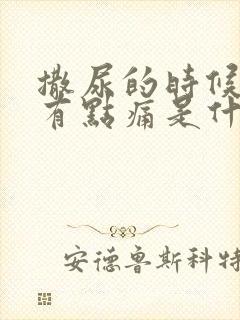 撒尿的時候
有點痛是什
安德魯斯科特